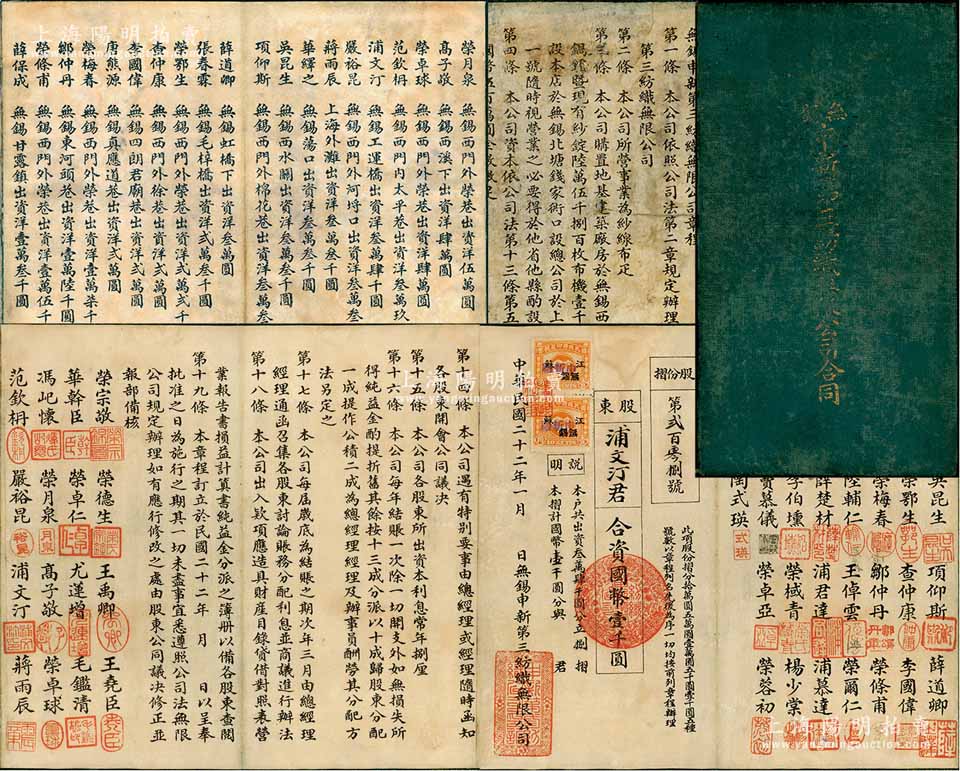 上海陽明拍賣
www.yangmingauction.com
榮月泉 無錫西門外榮巷出資洋伍萬圓
高子敬 無錫西溪下出資洋肆萬圓
榮卓球 無錫西門外榮巷出資洋肆萬圓
范欽枬 無錫西門內太平巷出資洋叁萬玖
浦文汀 無錫工運橋出資洋叁萬肆千圓
嚴裕昆 無錫西門外河埒口出資洋叁萬叁千圓
蔣雨辰 上海外灘出資洋叁萬叁千圓
華繹之 無錫蕩口出資洋叁萬叁千圓
吳昆生 無錫西水關出資洋叁萬叁千圓
項仰斯 無錫西門外棉花巷出資洋叁萬叁
薛道卿 無錫虹橋下出資洋叁萬圓
張春霖 無錫毛梓橋出資洋弍萬叁千圓
榮鄂生 無錫西門外榮巷出資洋弍萬弍千
查仲康 無錫西門外徐巷出資洋弍萬圓
李國偉 無錫四朗君廟巷出資洋弍萬圓
唐熊源 無錫真應道巷出資洋弍萬圓
榮梅春 無錫西門外榮巷出資洋壹萬柒千
鄒仲丹 無錫東河頭巷出資洋壹萬陸千圓
榮條甫 無錫西門外榮巷出資洋壹萬伍千
薛保成 無錫甘露鎮出資洋壹萬叁千圓
無錫申新第三紡織無限公司章程
第一條 本公司依照公司法第二章規定辦理
第三紡織無限公司
第二條 本公司所營事業為紗線布疋
第三條 本公司購置地基建築廠房於無錫西
錫暨現有紗錠陸萬伍千捌百枚布機壹千
設本店於無錫北塘錢家衖口設總公司於上
一號隨時視營業之必要得於他省他縣酌設
第四條 本公司資本依公司法第十三條第五
無錫申新第三紡織無限公司合同
第十四條 本公司遇有特別要事由總經理或經理隨時函知
各股東開會公同議決
第十五條 本公司各股東所出資本利息常年捌厘
第十六條 本公司每年結賬一次除一切開支外如無損失所
得純益金酌提折舊其餘按十三成分派以十成歸股東分配
一成提作公積二成為總經理經理及辦事員酬勞其分配方
法另定之
第十七條 本公司每屆歲底為結賬之期次年三月由總經理
經理通函召集各股東討論賬務分配利息並商議進行辦法
第十八條 本公司出入欵項應造具財產目錄貸借對照表營
業報告書損益計算書純益金分派之簿冊以備各股東查閱
第十九條 本章程訂立於民國二十二年 月 日以呈奉
批准之日為施行之期其一切未盡事宜悉遵照公司法無限
公司規定辦理如有應行修改之處由股東公同議決修正並
報部備核
榮宗敬 榮德生 王禹卿 王堯臣
華幹臣 榮卓仁 尤運增 毛鑑清
馮屺懷 榮月泉 高子敬 榮卓球
范欽枬 嚴裕昆 浦文汀 蔣雨辰
股份摺
第弍百零捌號
股東 浦文汀君 合資國幣壹千圓
說明
本戶共出資叁萬肆千圓分立捌摺
本摺計國幣壹千圓分與 君
中華民國二十二年一月 日無錫申新第三紡織無限公司
此項股份摺分拾萬圓五萬圓壹萬圓五千圓壹千圓五種
號數以章程列名先後為序一切均按前列章程辦理
吳昆生 項仰斯 薛道卿
榮鄂生 查仲康 李國偉
榮梅春 鄒仲丹 榮條甫
陸輔仁 王倬雲 榮爾仁
薛楚材 浦君達 浦慕達
李伯壎 榮棫青 楊少棠
竇慕儀 榮卓亞 榮蓉初
陶式瑛